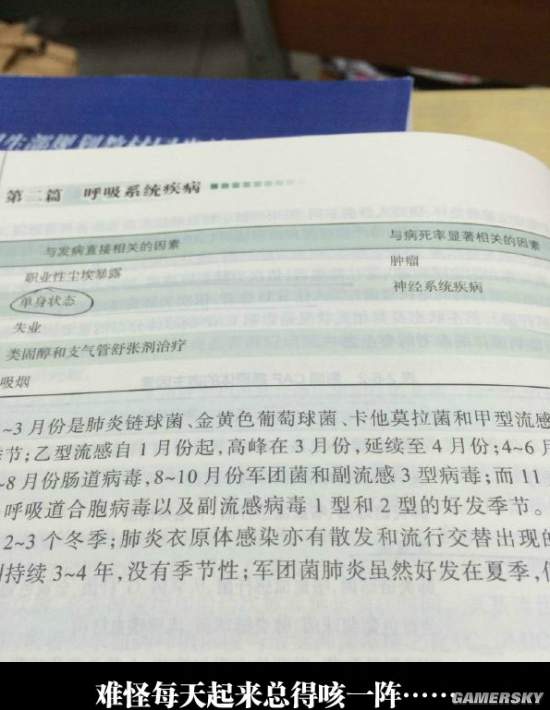 第二篇 呼吸系统疾病
与发病直接相关的因素 与病死率显著相关的因素
职业性尘埃暴露 肿瘤
单身状态 神经系统疾病
失业
类固醇和支气管舒张剂治疗
吸烟
~3月份是肺炎链球菌、金黄色葡萄球菌、卡他莫拉菌和甲型流感
季节;乙型流感自1月份起,高峰在3月份,延续至4月份;4~6月
~8月份肠道病毒,8~10月份军团菌和副流感3型病毒;而11
呼吸道合胞病毒以及副流感病毒1型和2型的好发季节。
2~3个冬季;肺炎衣原体感染亦有散发和流行交替出现的
持续3~4年,没有季节性;军团菌肺炎虽然好发在夏季,
难怪每天起来总得咳一阵……
GAMERSKY